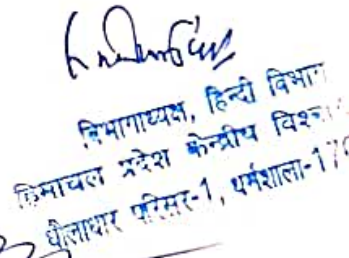 विभागाध्यक्ष, हिन्दी विभाग
हिमाचल प्रदेश केन्द्रीय
धौलाधार परिसर-1, धर्मशाला-17